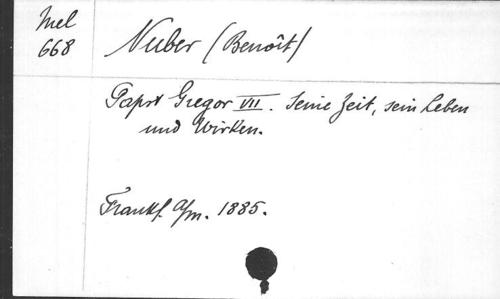 Mel
668
Nuber (Benoît)
Papst Gregor VII. Seine Zeit, sein Leben
und Wirken.
Frankf. a/m. 1885.